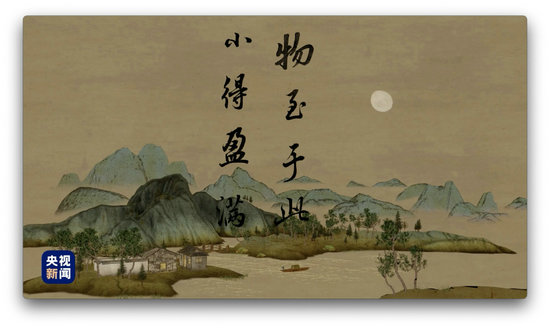 物至于此
小得盈满
央视
新闻